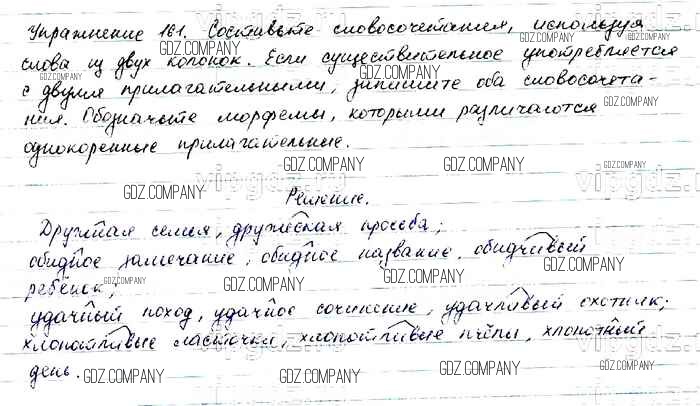 Упражнение 161. Составьте словосочетания, используя
GDZ.COMPANY
слова из двух колонок. Если существительное употребляется
с двумя прилагательными, запишите оба словосочета-
ния. Обозначьте морфемы, которыми различаются
однокоренные прилагательные.
GDZ.COMPANY GDZ.COMPANY GDZ.COMPANY
Решение.
Дружная семья, дружеская просьба;
обидное замечание, обидное название, обидчивый
ребёнок;
GDZ.COMPANY GDZ.COMPANY GDZ.COMPANY
удачный поход, удачное сочинение, удачливый охотник;
хлопотливые ласточки, хлопотливые пчёлы, хлопотный
день.
GDZ.COMPANY GDZ.COMPANY GDZ.COMPANY GDZ.COMPANY